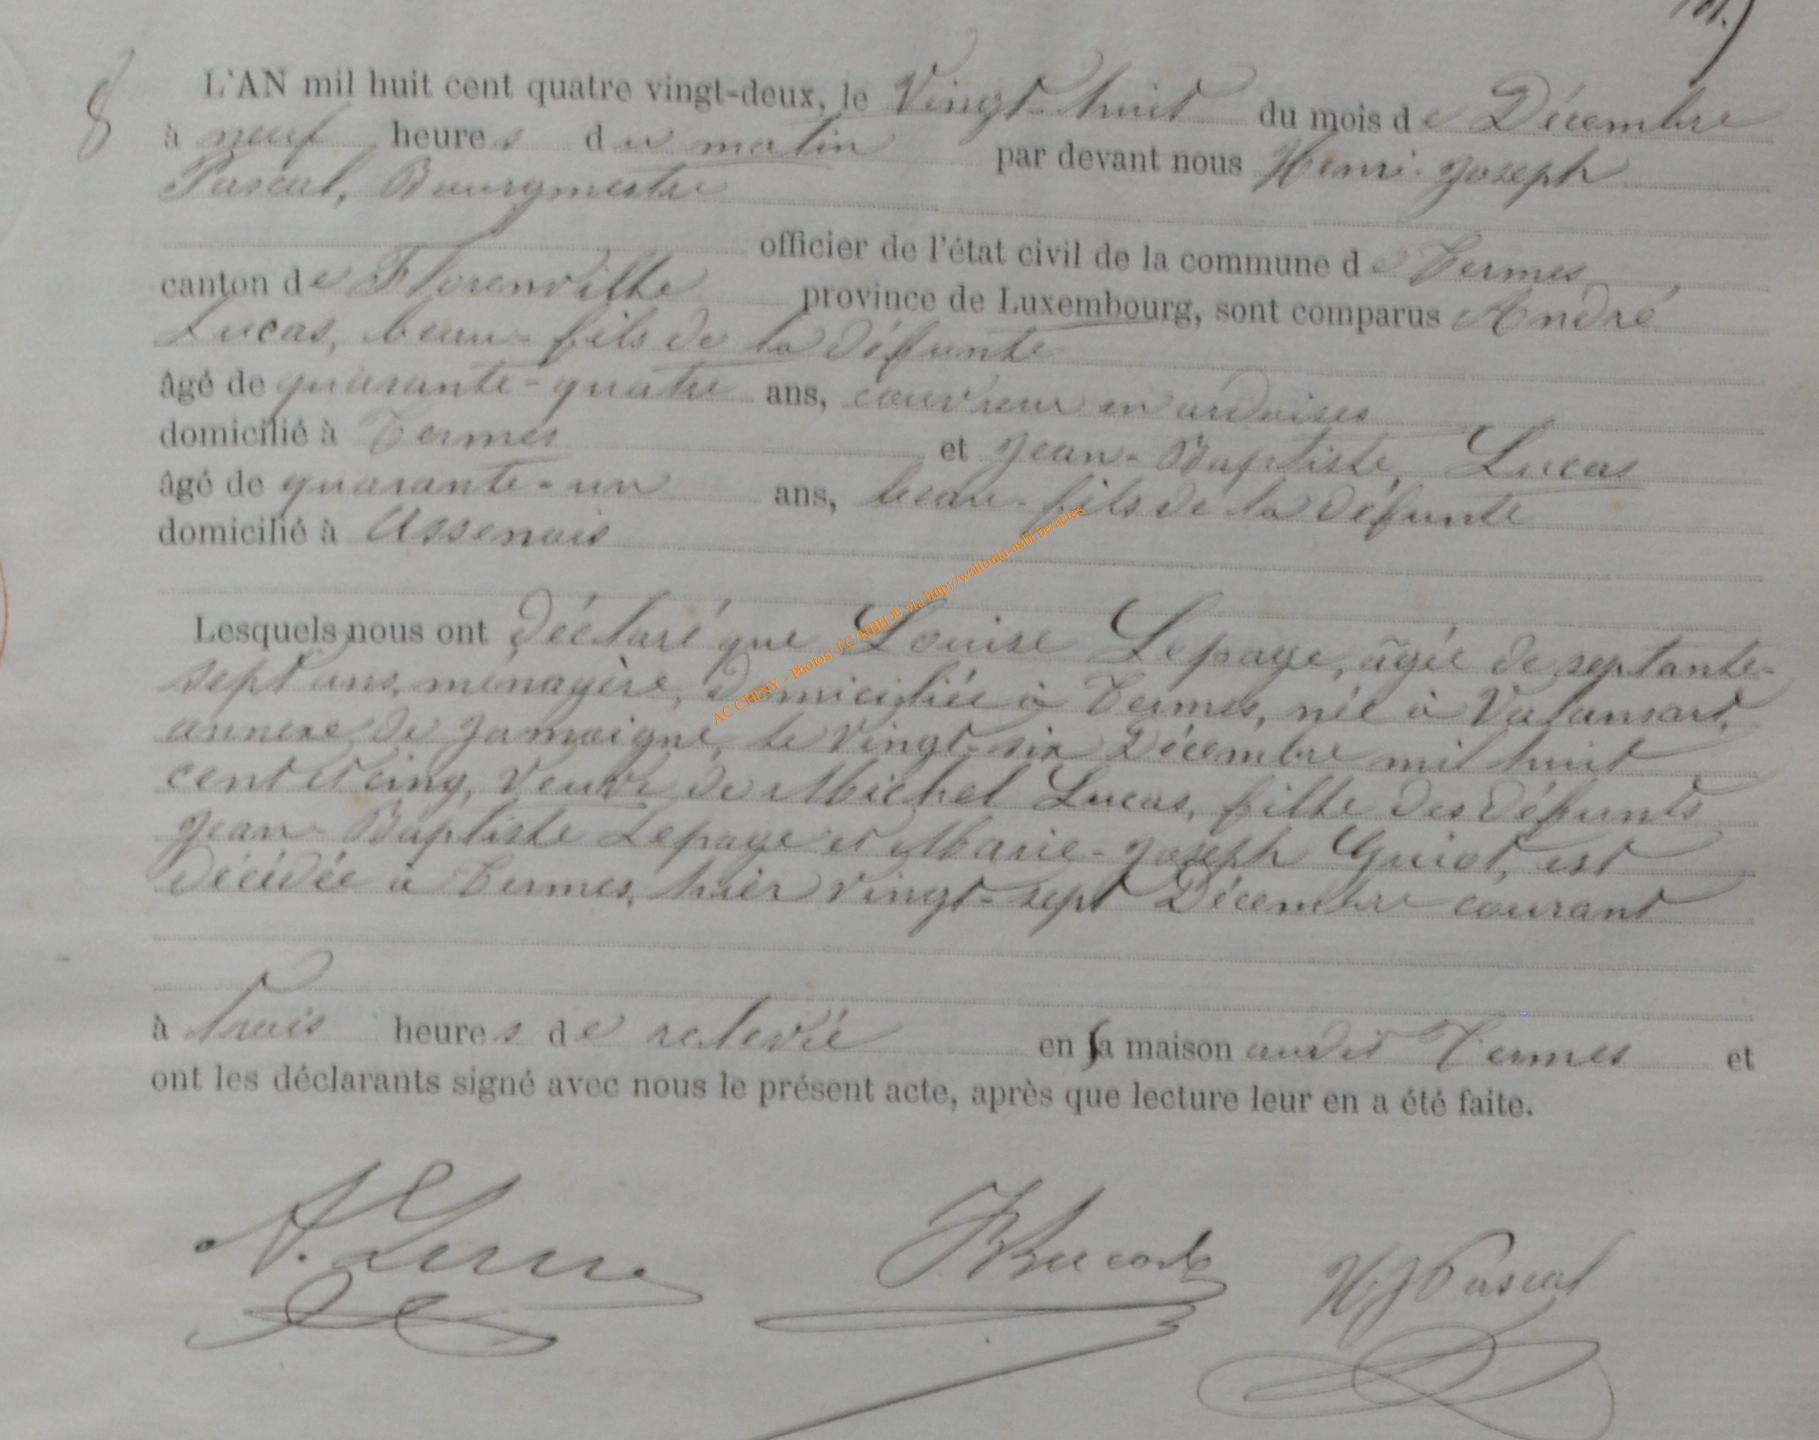 8
L'AN mil huit cent quatre vingt-deux, le Vingt-huit du mois de Décembre
à neuf heures du matin par devant nous Henri-Joseph
Pascal, Bourgmestre
officier de l'état civil de la commune de Termes
canton de Florenville province de Luxembourg, sont comparus André
Lucas, beau-fils de la défunte
âgé de quarante-quatre ans, couvreur en ardoises
domicilié à Termes et Jean-Baptiste, Lucas
âgé de quarante-un ans, beau-fils de la défunte
domicilié à Assenois
Lesquels nous ont déclaré que Louise Lepage, âgée de septante-
sept ans, ménagère, domiciliée à Termes, née à Valansart,
annexe de Jamoigne, le vingt-six Décembre mil huit
cent et cinq, Veuve de Michel Lucas, fille des défunts
Jean-Baptiste Lepage et Marie-Joseph Guiot, est
décédée à Termes, hier vingt-sept Décembre courant
à trois heures de relevée en sa maison audit Termes et
ont les déclarants signé avec nous le présent acte, après que lecture leur en a été faite.
A. Lucas JB Lucas HJ Pascal